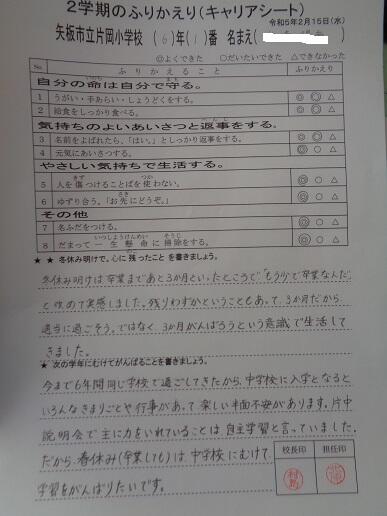 2学期のふりかえり(キャリアシート)
令和5年2月15日(水)
矢板市立片岡小学校 (6)年(1)番 名まえ( )
◎よくできた ○だいたいできた △できなかった
No ふりかえること ふりかえり
自分の命は自分で守る。
1 うがい・手あらい・しょうどくをする。 ◎ ○ △
2 給食をしっかり食べる。 ◎ ○ △
気持ちのよいあいさつと返事をする。
3 名前をよばれたら、「はい。」としっかり返事をする。 ◎ ○ △
4 元気にあいさつする。 ◎ ○ △
やさしい気持ちで生活する。
5 人を傷つけることばを使わない。 ◎ ○ △
6 ゆずり合う。「お先にどうぞ。」 ◎ ○ △
その他
7 名ふだをつける。 ◎ ○ △
8 だまって一生懸命に掃除をする。 ◎ ○ △
★ ★ 冬休み明けで、心に残ったことを書きましょう。
冬休み明けは卒業まであと3か月といったところで"もう少しで卒業なんだ"
と改めて実感しました。残りわずかということもあって、3か月だから
適当に過ごそう。ではなく、3か月がんばろうという意識で生活して
きました。
★ 次の学年にむけてがんばることを書きましょう。
今まで6年間同じ学校で過ごしてきたから、中学校に入学となると
いろんなきまりごとや行事があって楽しい半面不安があります。片中
説明会で主に力をいれていることは、自主学習と言っていました。
だから、春休み(卒業しても)は、中学校にむけて、
学習をがんばりたいです。
校長印 担任印